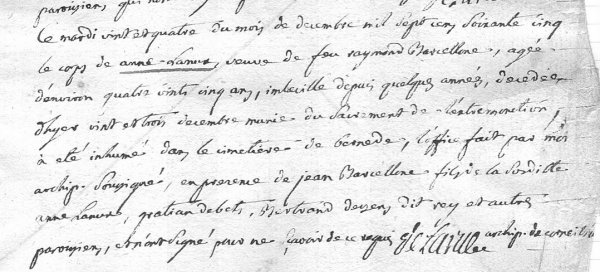 paroissien, qui
Le mardi vint et quatre du mois de decembre mil sept cens soixante cinq
le corps de anne Lanux, veuve de feu raymond Barcellone, agée
d'environ quatre vints cinq ans, imbecille depuis quelques années, decedée
d'hyer vint et trois decembre munie du sacrement de l'extremonction,
à eté inhumé dans le cimetière de bernede, l'office fait par moi
archip. soussigné, en presence de jean Barcellone fils de la sondille
anne Lanux, gratian debets, Bertrand dezens dit rey et autres
paroissiens, et n'ont signé pour ne sçavoir de ce requis archip. de corneillan